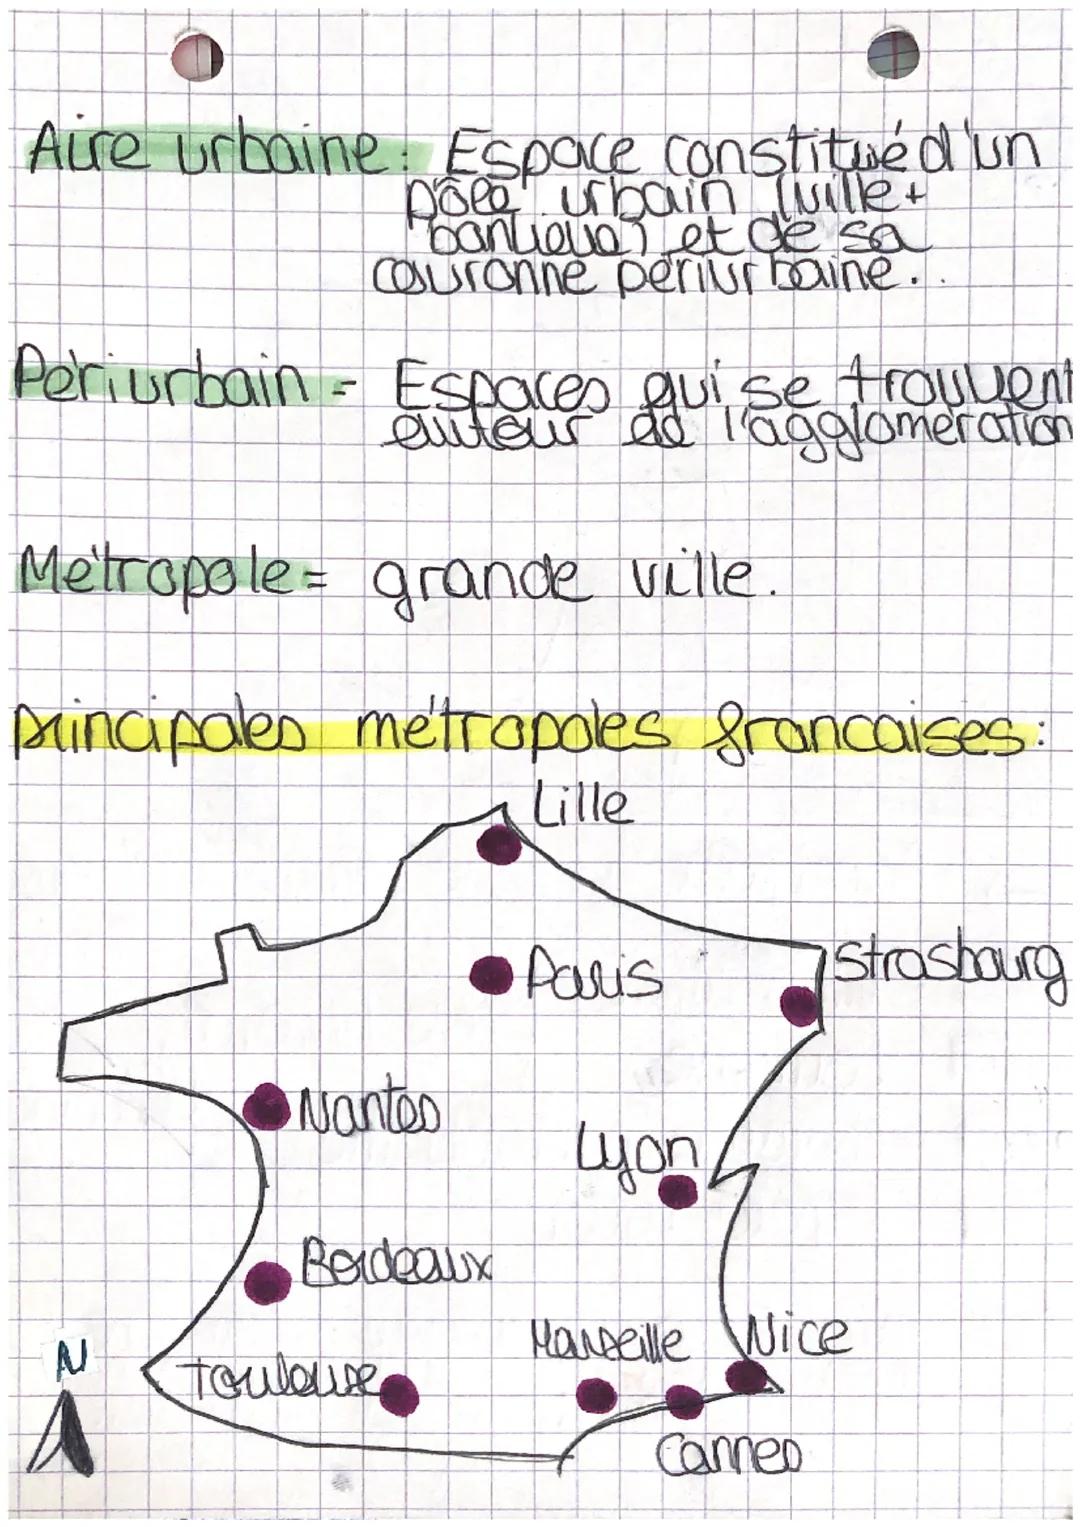 Aire urbaine: Espace constitué d'un
pôle urbain (ville+
banlieue) et de sa
couronne périurbaine..
Périurbain = Espaces qui se trouvent
autour de l'agglomération
Métropole = grande ville.
principales métropoles francaises:
Lille
Paris
Strasbourg
Nantes
Lyon
Bordeaux
Marseille
Nice
Toulouse
Cannes
N